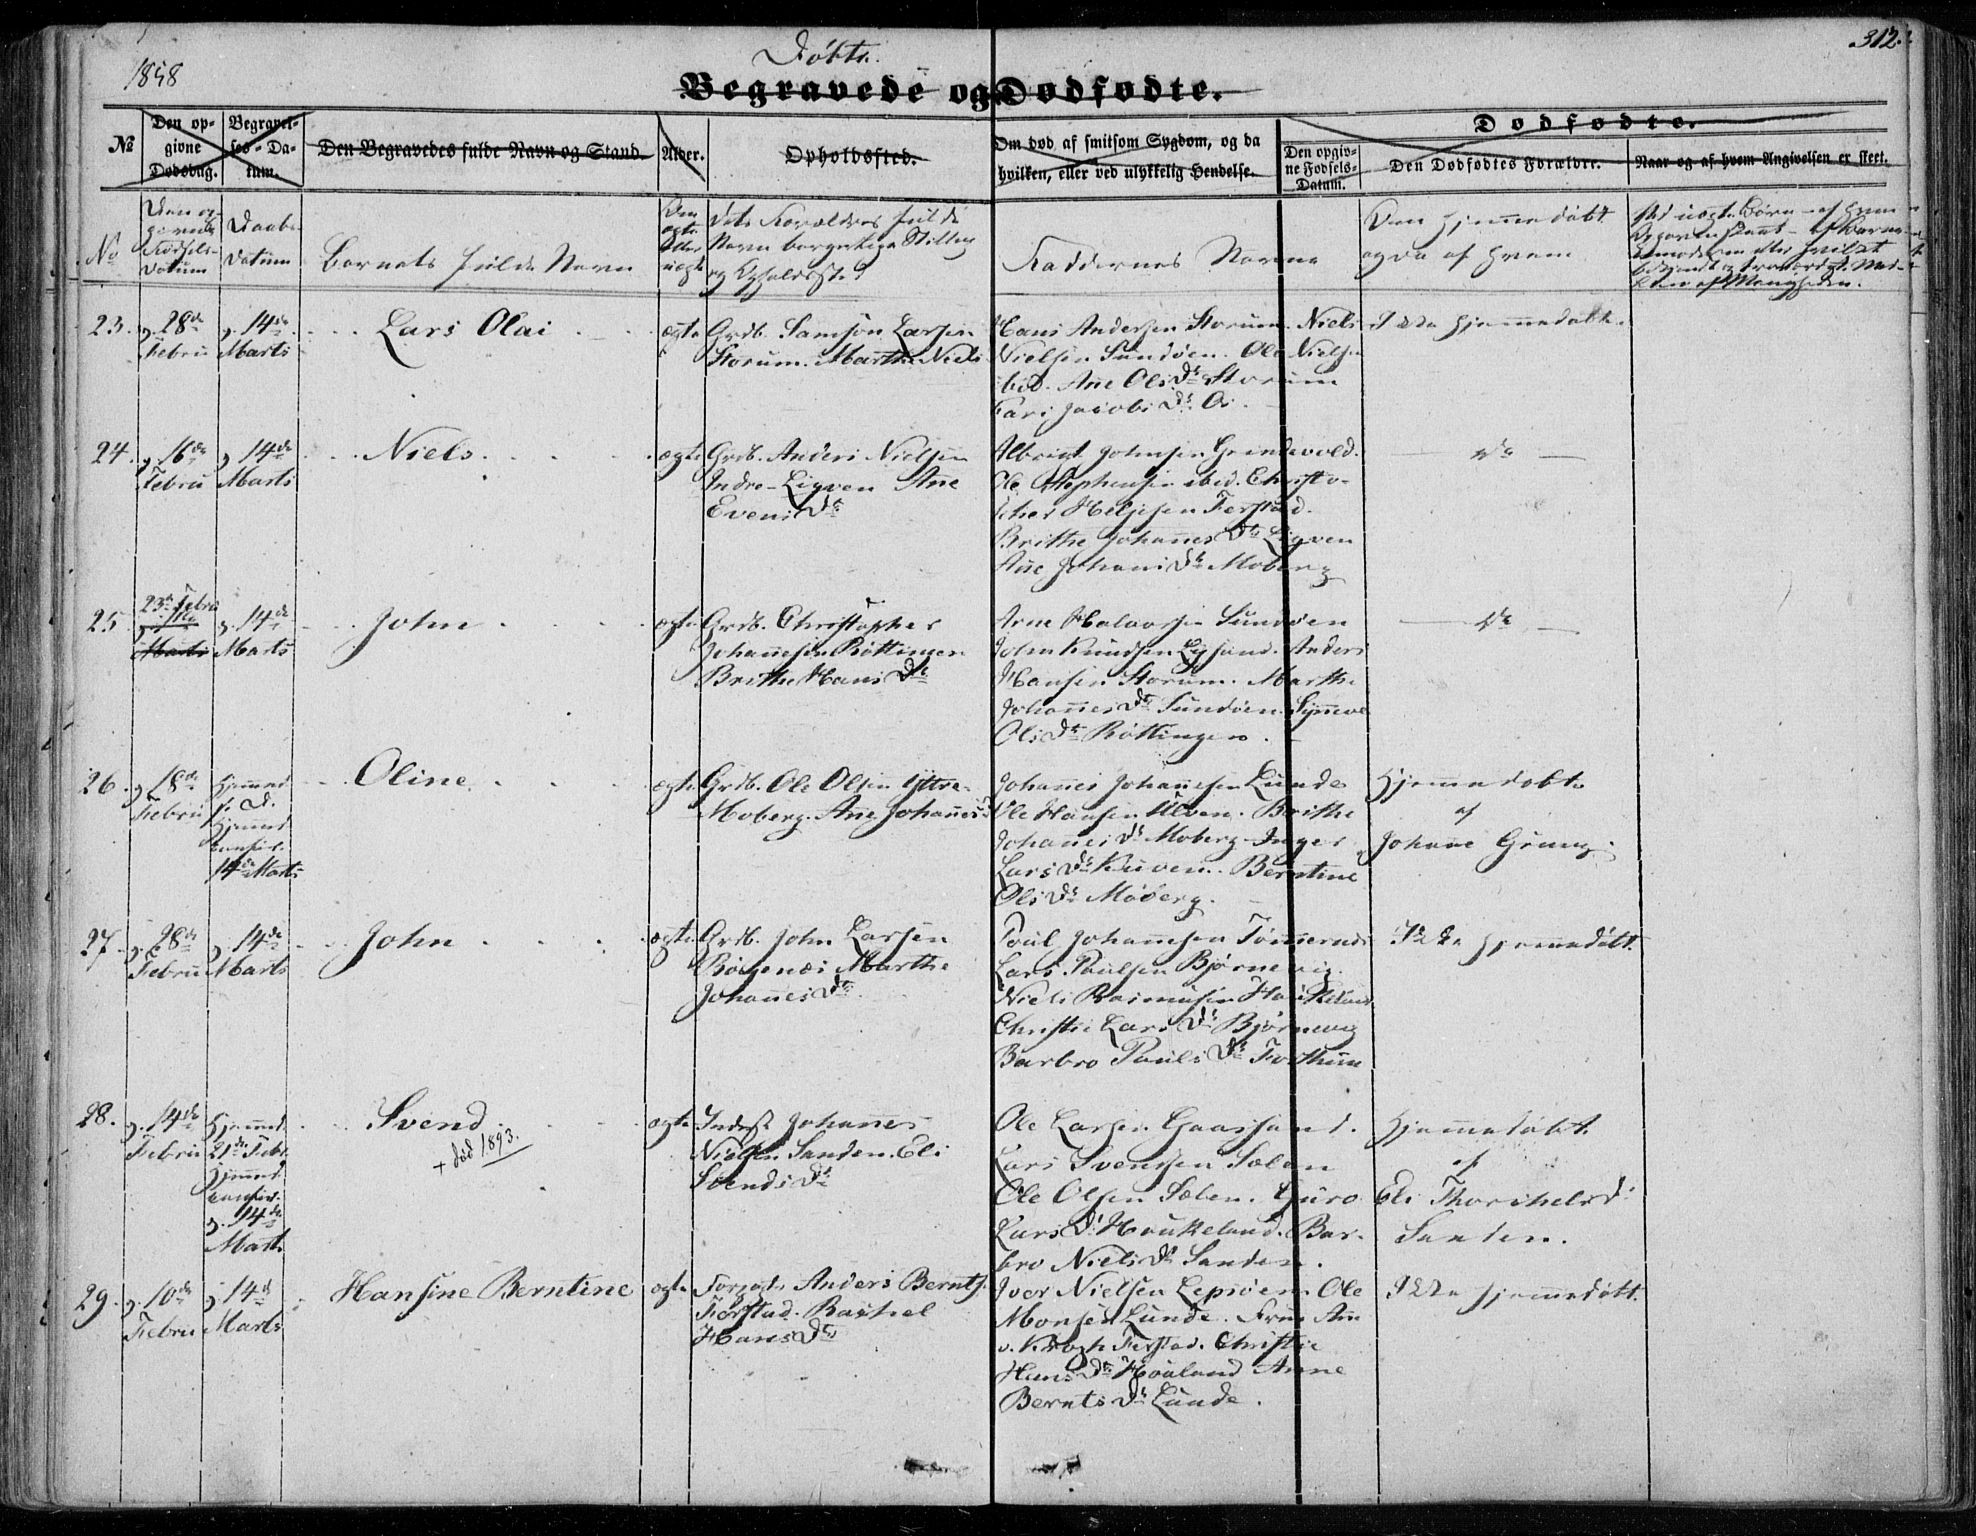 1858
Døbte.
312.
Begravede og Dødfødte.
№
Den opgivne Dødsdag.
Begravelses-Datum.
Den Begravedes fulde Navn og Stand.
Alder.
Opholdssted.
Om død af smitsom Sygdom, og da hvilken, eller ved ulykkelig Hendelse.
Dødfødte.
Den opgivne Fødsels-Datum.
Den Dødfødtes Forældre.
Naar og af hvem Angivelsen er skeet.
No
Den opgivne Fødsels-Datum
Daabs Datum
Barnets fulde Navn
Den ægte eller uægte
Dets Forældres fulde Navn borgerlige Stilling og Opholdssted
Faddernes Navne
Om hjemmedøbt og da af hvem
23.
d. 28de
Febru
d. 14de
Marts
Lars Olai
ægte
Grdb. Samson Larsen
Storum. Marthe Niels
Hans Andersen Storum. Niels
Nielsen Sundøen. Ole Nielsen
ibid. Ane Olsdr Storum
Kari Jacobsdr Os.
Ikke hjemmedøbt.
24.
d. 16de
Febru
d. 14de
Marts
Niels
ægte
Grdb. Anders Nielsen
Indre-Ligven Ane
Evensdr
Albrigt Johnsen Grindevold.
Ole Stephensen ibid. Christo-
pher Helgesen Ferstad.
Brithe Johannesdr Ligven
Ane Johansdr Moberg
do
25.
23de Febru
Marts
d. 14de
Marts
John
ægte
Grdb. Christopher
Johannesen Røttingen
Brithe Hansdr
Arne Halvorsen Sundøen
John Knudsen Lysand. Anders
Hansen Storum. Marthe
Johannesdr Sundøen. Synneve
Olsdr Røttingen.
do
26.
d. 18de
Febru
Hjemmed.
Hjemmed.
14de Marts
Oline
ægte
Grdb. Ole Olsen Yttre-
Moberg. Ane Johannesdr
Johannes Johannesen Lunde
Ole Hansen Ulven. Brithe
Johannesdr Moberg. Inger
Larsdr Kuven. Berntine
Olsdr Moberg.
Hjemmedøbt
af
Johanne Grung.
27.
d. 28de
Febru
d. 14de
Marts
John
ægte
Grdb. John Larsen
Røgenæs Marthe
Johannesdr
Poul Johannesen
Lars Poulsen Bjørnevig.
Niels Rasmusen Haukeland
Christi Larsdr Bjørnevig
Barbro Poulsdr
Ikke hjemmedøbt.
28.
d. 14de
Febru
Hjemmed.
21de Febr.
Hjemmed.
d. 14de
Marts
Svend
+ død 1893.
ægte
Inderst Johannes
Nielsen Sanden. Eli
Svendsdr
Ole Larsen Gaassand.
Lars Svendsen Sælen
Ole Olsen Sælen. Guro
Larsdr Haukeland. Bar-
bro Nielsdr Sanden.
Hjemmedøbt
af
Eli Thorchelsdr
Sanden.
29.
d. 10de
Febru
d. 14de
Marts
Hansine Berntine
ægte
Anders Berntsen
Ferstad. Rachel
Hansdr
Iver Nielsen Lepsøen. Ole
Monsen Lunde. Frue Ane
v. Krogh Ferstad. Christie
Hansdr Hovland Anne
Berntsdr Lunde.
Ikke hjemmedøbt.